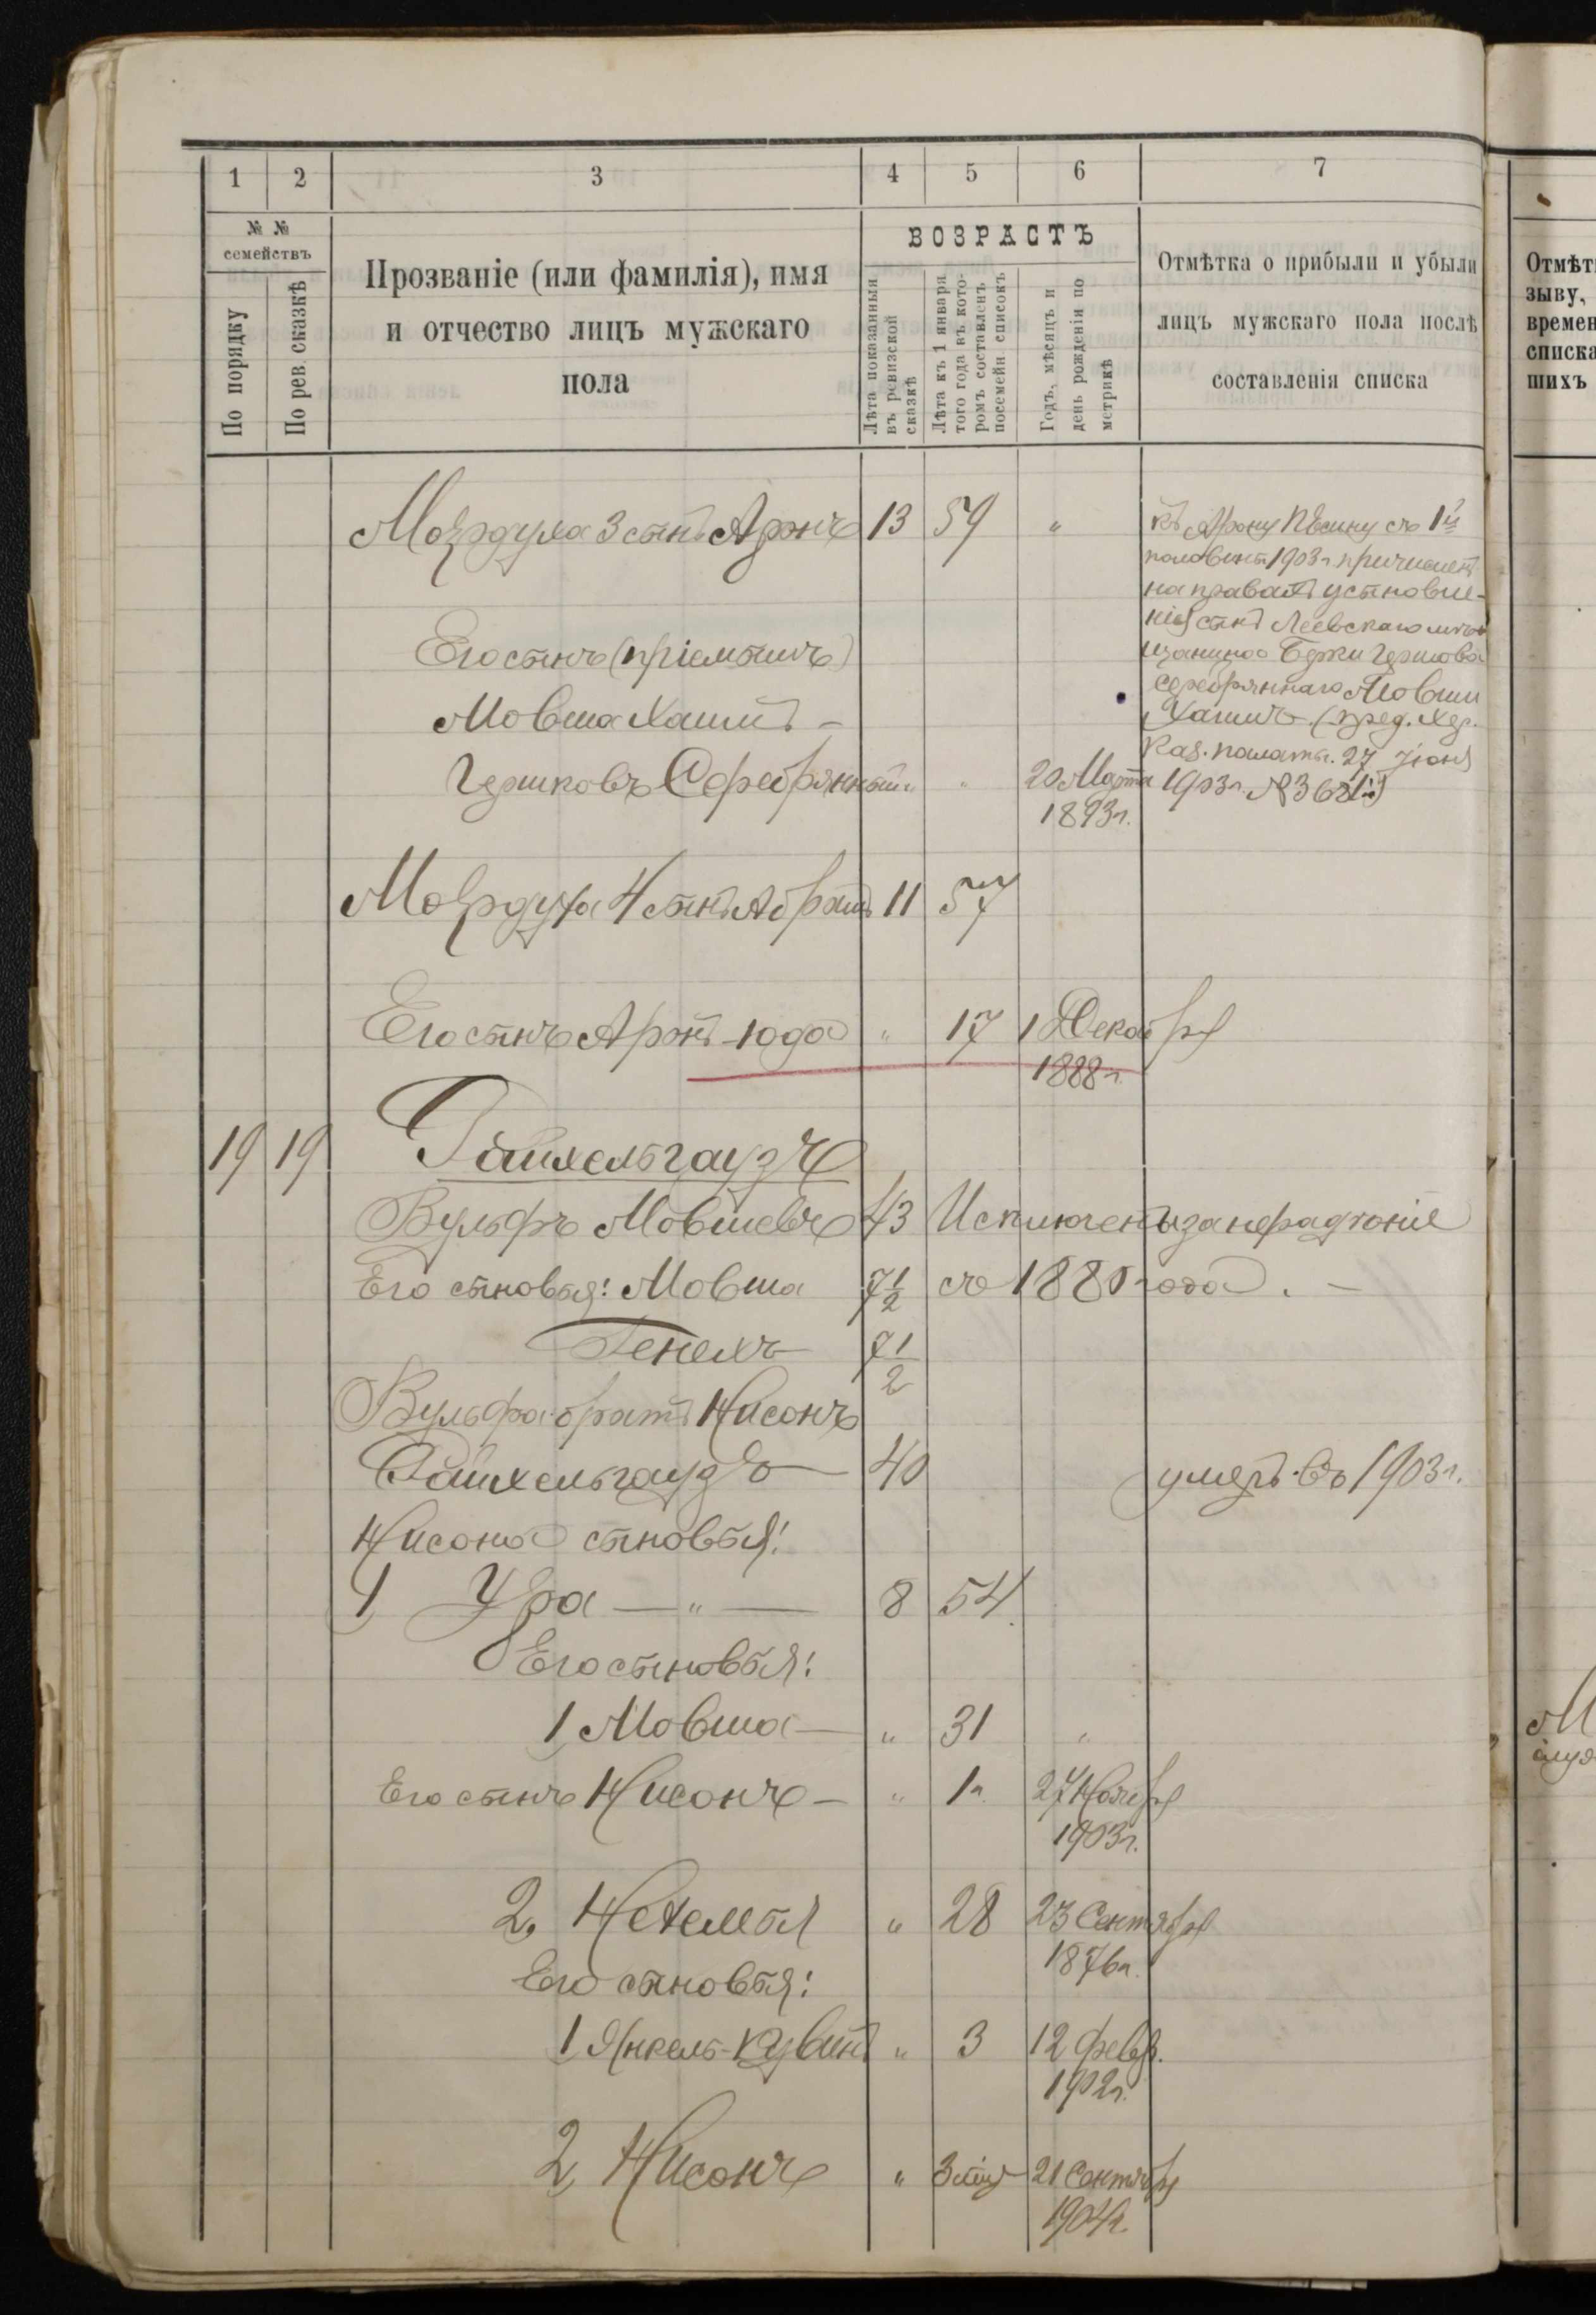 1 2 3 4 5 6 7
№ №
семействъ
По порядку
По рев. сказкѣ
Прозваніе (или фамилія), имя
и отчество лицъ мужскаго
пола
ВОЗРАСТЪ
Лѣта показанныя
въ ревизской
сказкѣ
Лѣта къ 1 января
того года въ кото-
ромъ составленъ
посемейн. списокъ
Годъ, мѣсяцъ и
день рожденія по
метрикѣ
Отмѣтка о прибыли и убыли
лицъ мужскаго пола послѣ
составленія списка
Мордуха 3 сынъ Аронъ 13 59 "
къ Арону Пѣсину съ 1й
половины 1903 г. причисленъ
на правахъ усыновле-
нія сынъ мѣ-
щанина Берки Гершкова
Серебряннаго Мовши
Хаимъ. (пред. Хер.
Каз. палаты. 27 Іюня
1903 г. №
Его сынъ (пріемышъ)
Мовша Хаимъ –
Гершковъ Серебрянный " " 20 Марта
1893 г.
Мордуха 4 сынъ Абрамъ 11 57
Его сынъ Аронъ-Юда " 17 1 Декабря
1888 г.
19 19 Райхельгаузъ
Вульфъ Мовшевъ 43 Исключены за нерадѣніе
Его сыновья: Мовша 7 1/2 съ 1880 года. –
Генехъ 7 1/2
Вульфа братъ Нисонъ
Райхельгаузъ – 40 умеръ въ 1903 г.
Нисона сыновья:
1 — " — 8 54
Его сыновья:
1 Мовша – " 31 "
Его сынъ Нисонъ – " 1 г. 27 Ноября
1903 г.
2. Нехемья " 28 23 Сентября
1876 г.
Его сыновья:
1 Янкель- " 3 12 февр.
1902 г.
2 Нисонъ " 3 мѣс. 21 Сентября
1904 г.
Отмѣт
зыву,
времен
списка
шихъ